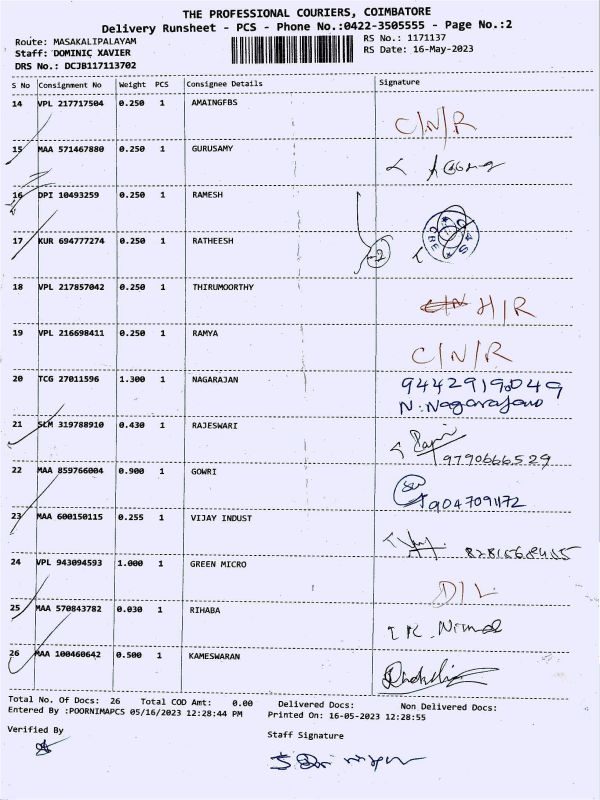 THE PROFESSIONAL COURIERS, COIMBATORE
Delivery Runsheet - PCS - Phone No.:0422-3505555 - Page No.:2
Route: MASAKALIPALAYAM RS No.: 1171137
Staff: DOMINIC XAVIER RS Date: 16-May-2023
DRS No.: DCJB117113702
S No Consignment No Weight PCS Consignee Details Signature
14 VPL 217717504 0.250 1 AMAINGFBS C/N/R
15 MAA 571467880 0.250 1 GURUSAMY
16 DPI 10493259 0.250 1 RAMESH
17 KUR 694777274 0.250 1 RATHEESH
18 VPL 217857042 0.250 1 THIRUMOORTHY H/R
19 VPL 216698411 0.250 1 RAMYA C/N/R
20 TCG 27011596 1.300 1 NAGARAJAN 9442919049
N.Nagarajan
21 SLM 319788910 0.430 1 RAJESWARI 9790666529
22 MAA 859766004 0.900 1 GOWRI 9047091172
23 MAA 600150115 0.255 1 VIJAY INDUST
24 VPL 943094593 1.000 1 GREEN MICRO D/L
25 MAA 570843782 0.030 1 RIHABA
26 MAA 100460642 0.500 1 KAMESWARAN
Total No. Of Docs: 26 Total COD Amt: 0.00 Delivered Docs: Non Delivered Docs:
Entered By :POORNIMAPCS 05/16/2023 12:28:44 PM Printed On: 16-05-2023 12:28:55
Verified By Staff Signature